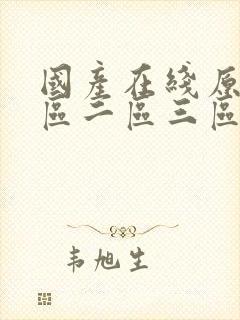 國產在綫原
區二區三區
韦旭生